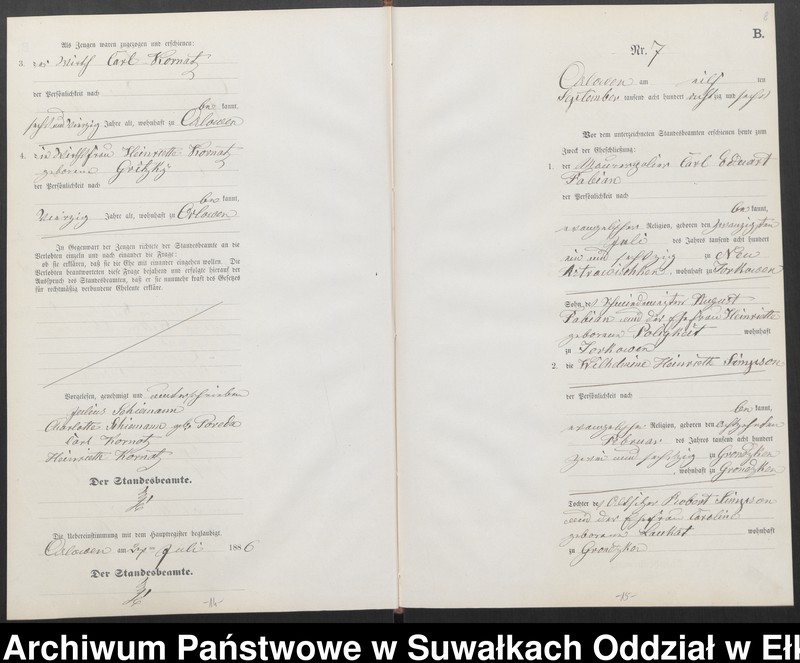 Als Zeugen waren zugezogen und erschienen:
3. der Wirth Carl Kornatz
der Persönlichkeit nach
be kannt,
sechs und vierzig Jahre alt, wohnhaft zu Orlowen
4. die Wirthsfrau Heinriette Kornatz
geborene Gritzky
der Persönlichkeit nach
be kannt,
vierzig Jahre alt, wohnhaft zu Orlowen
In Gegenwart der Zeugen richtete der Standesbeamte an die
Verlobten einzeln und nach einander die Frage:
ob sie erklären, daß sie die Ehe mit einander eingehen wollen. Die
Verlobten beantworteten diese Frage bejahend und erfolgte hierauf der
Ausspruch des Standesbeamten, daß er sie nunmehr kraft des Gesetzes
für rechtmäßig verbundene Eheleute erkläre.
Vorgelesen, genehmigt und unterschrieben
Julius Schiemann
Charlotte Schiemann geb. Poreda
Carl Kornatz
Heinriette Kornatz
Der Standesbeamte.
Die Uebereinstimmung mit dem Hauptregister beglaubigt.
Orlowen am 27ten Juli 1886
Der Standesbeamte.
-14-
B.
Nr. 7
Orlowen am ten
September tausend acht hundert achtzig und sechs
Vor dem unterzeichneten Standesbeamten erschienen heute zum
Zweck der Eheschließung:
1. der Carl Eduart
Fabian
der Persönlichkeit nach
be kannt,
evangelischer Religion, geboren den zwanzigsten
Juli des Jahres tausend acht hundert
ein und sechszig zu Neu
wohnhaft zu Jorkowen
Sohn des Schneidemeister August
Fabian und der Ehefrau Heinriette
geborene Poligkeit wohnhaft
zu Jorkowen
2. die Wilhelmine Heinriette Simpson
der Persönlichkeit nach
be kannt,
evangelischer Religion, geboren den achtzehnten
Februar des Jahres tausend acht hundert
zwei und sechszig zu Grondzken
, wohnhaft zu Grondzken
Tochter des Altsitzer Robert Simpson
und der Ehefrau Caroline
geborene Laukat wohnhaft
zu Grondzken
-15-
Archiwum Państwowe w Suwałkach Oddział w Ełk